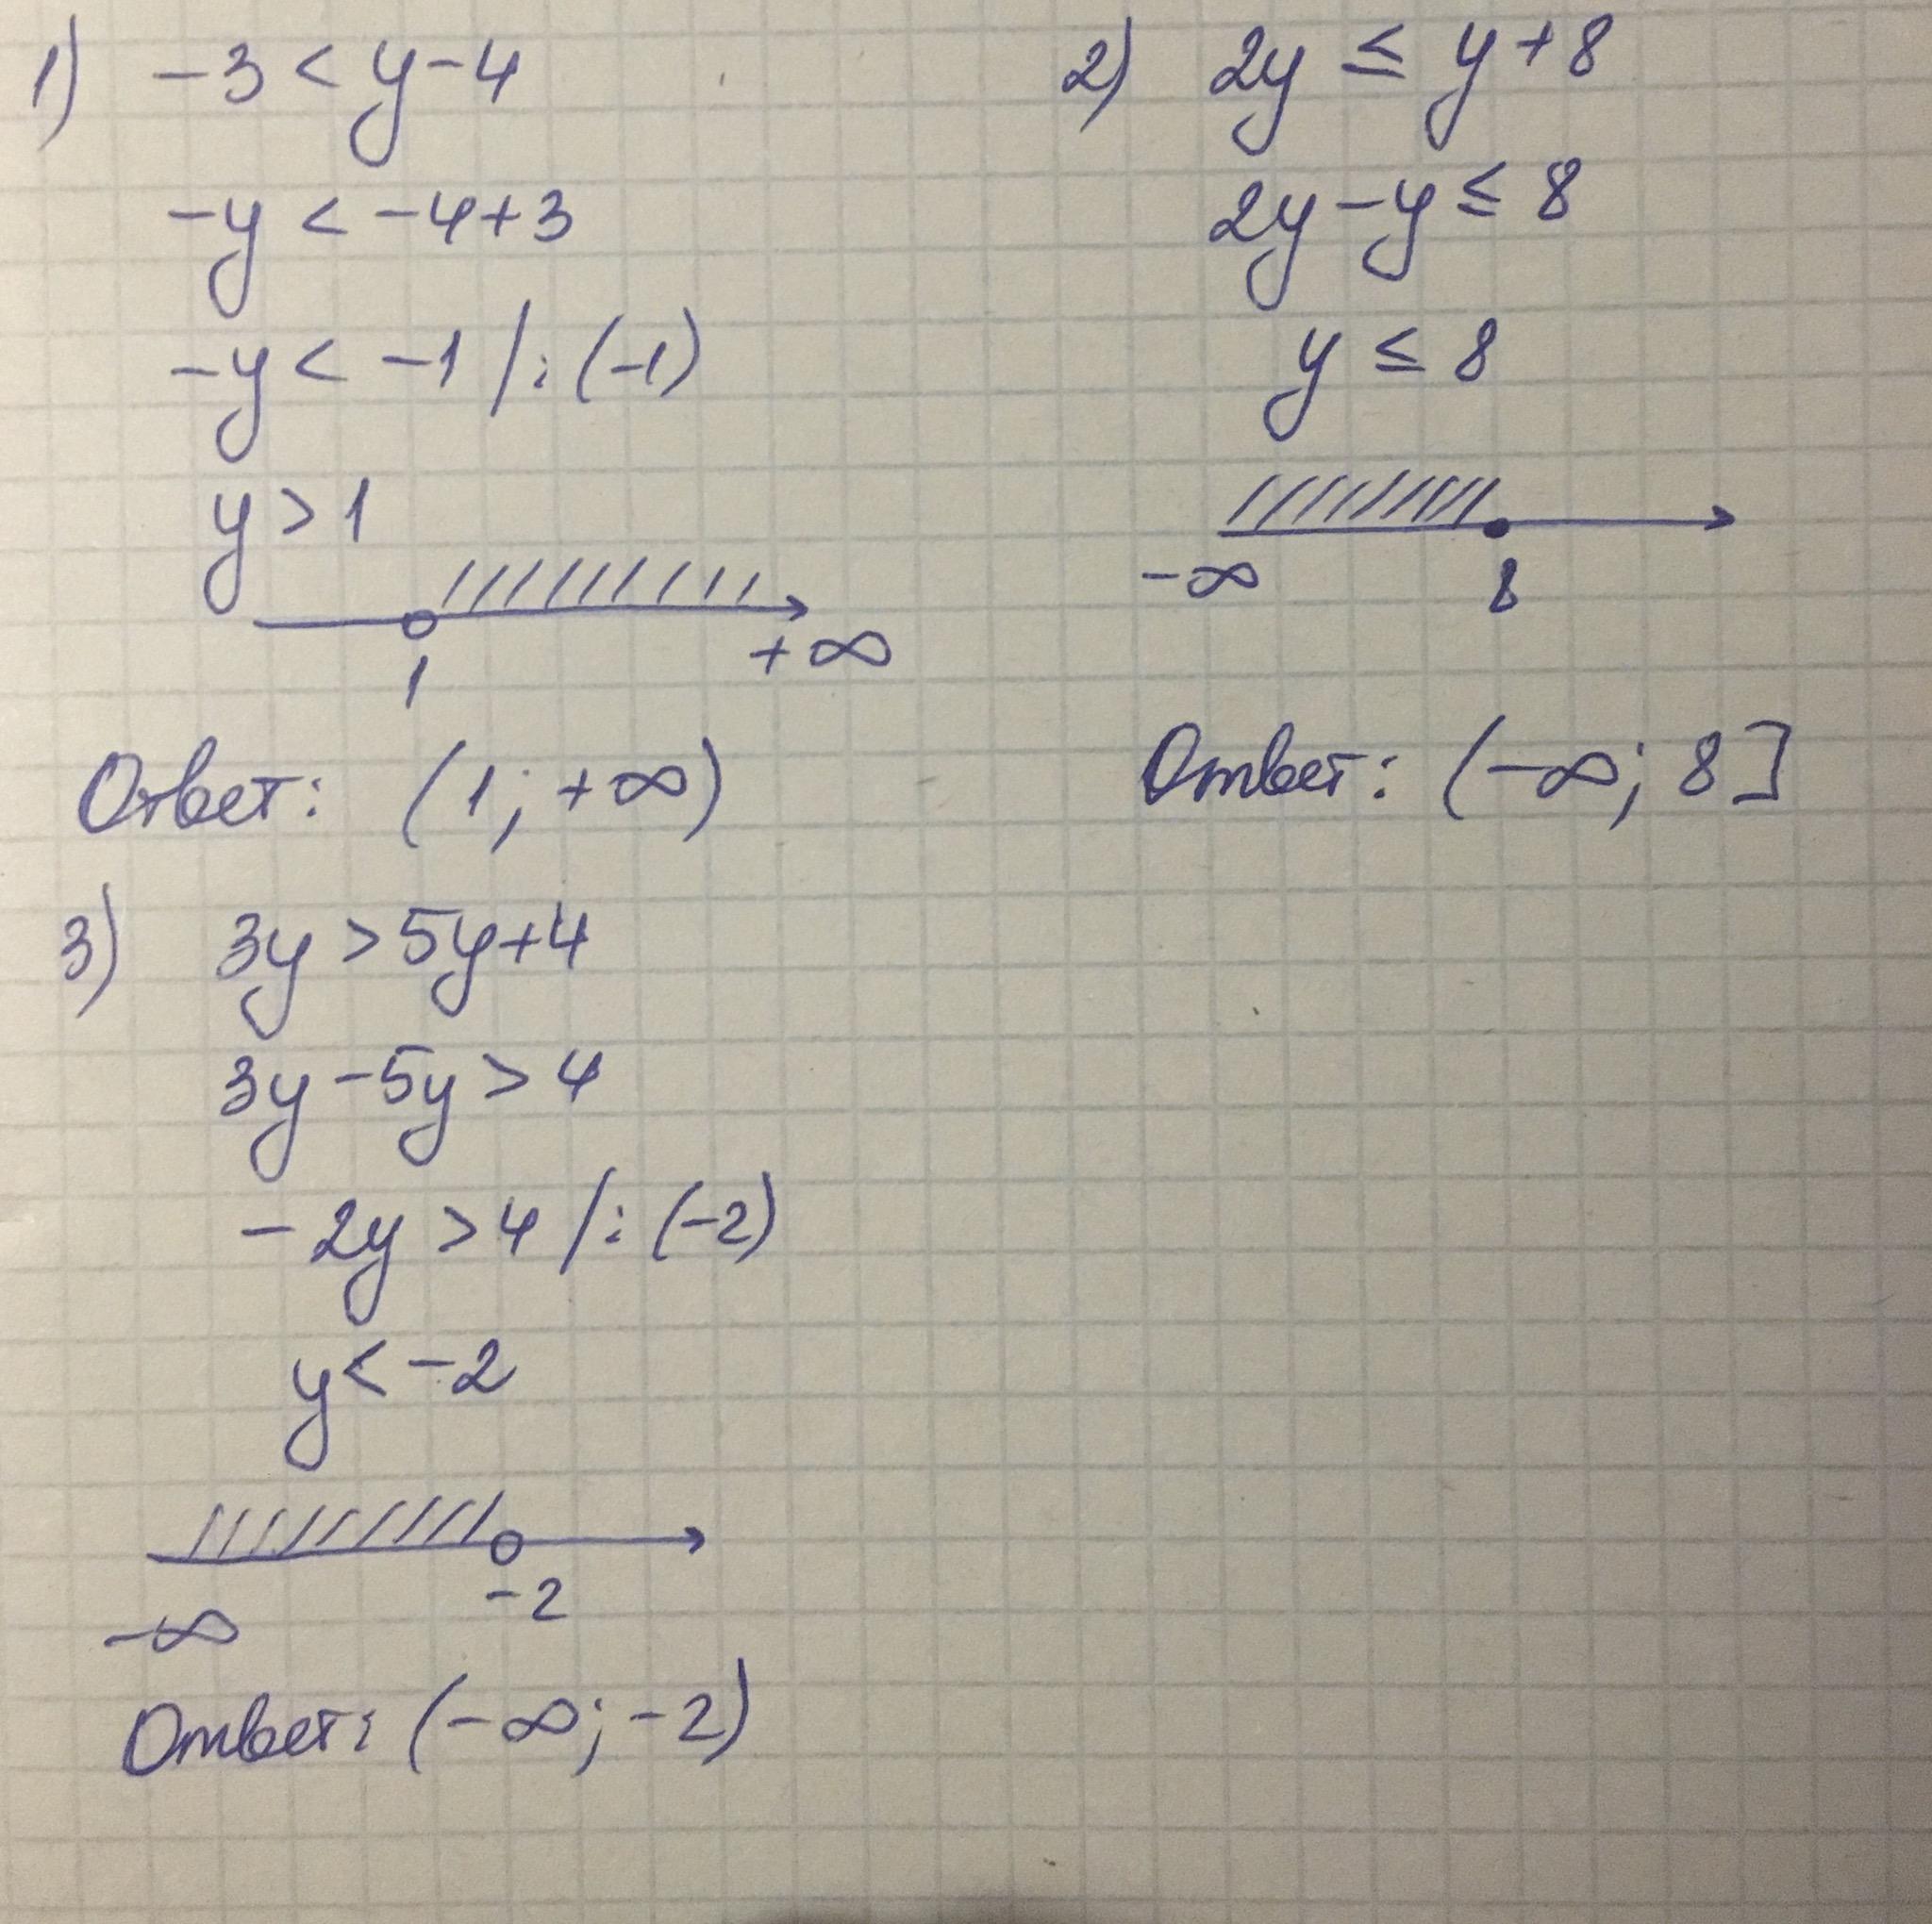 1) -3 < y-4
-y < -4+3
-y < -1 /: (-1)
y > 1
1 +∞
Ответ: (1; +∞)
2) 2y ≤ y+8
2y-y ≤ 8
y ≤ 8
-∞ 8
Ответ: (-∞; 8]
3) 3y > 5y+4
3y-5y > 4
-2y > 4 /: (-2)
y < -2
-∞ -2
Ответ: (-∞; -2)